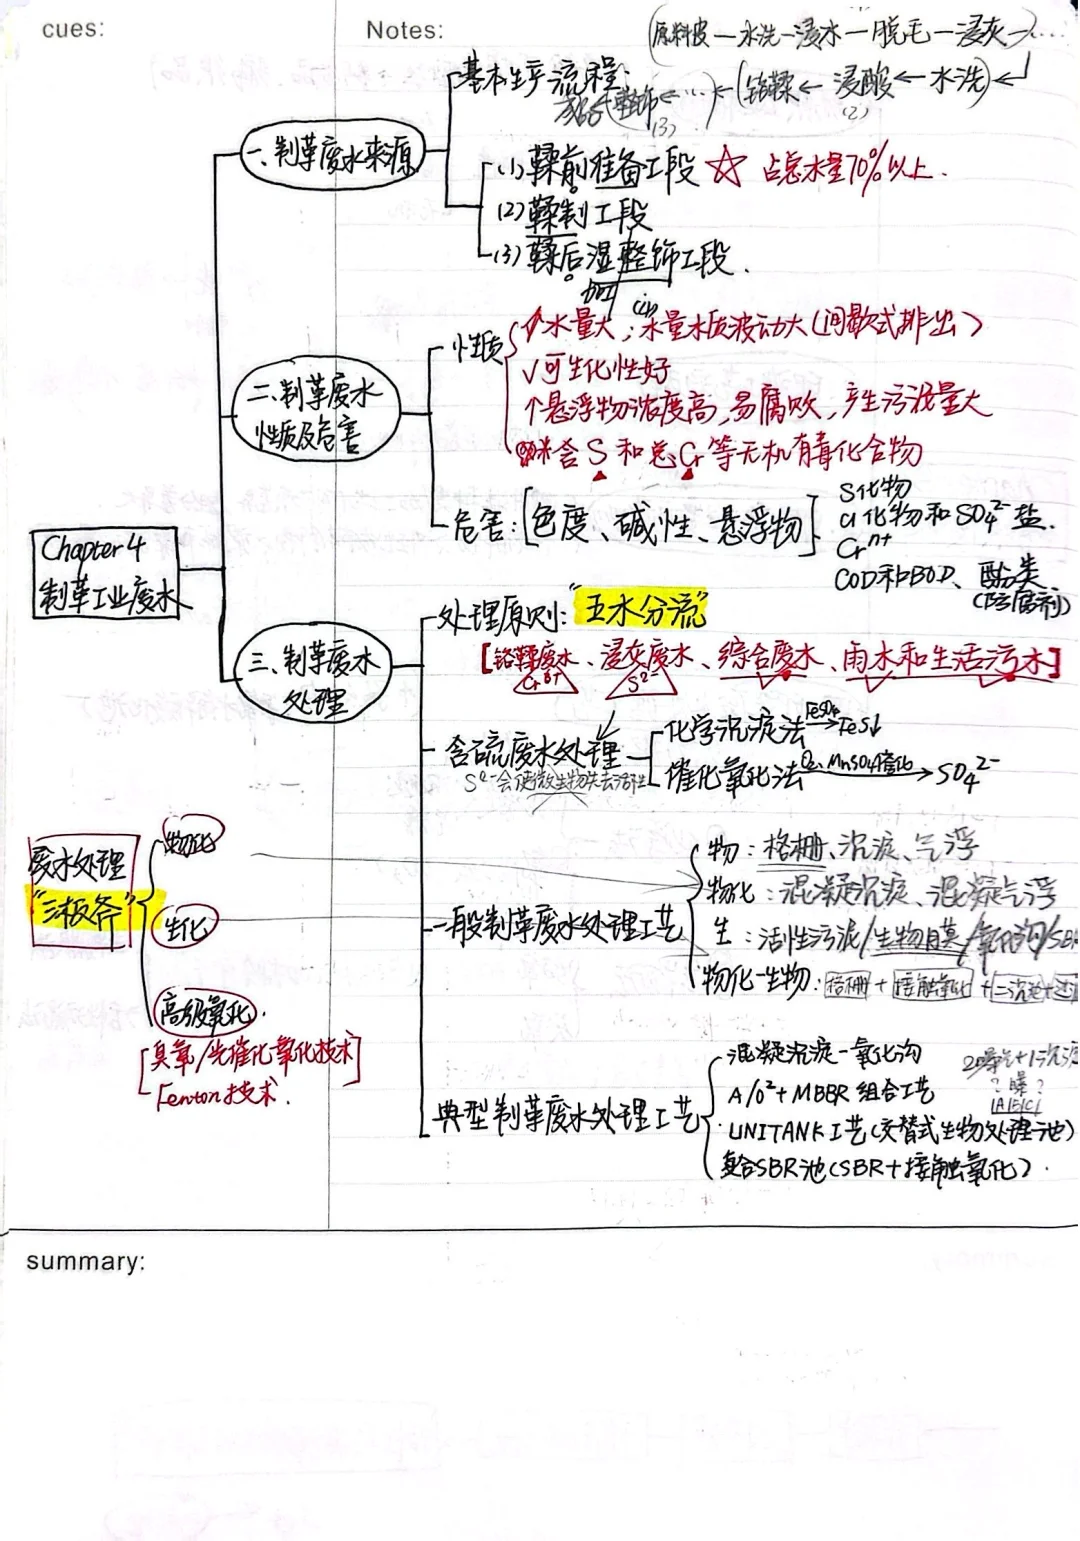 cues:
Notes:
(原料皮—水洗—浸水—脱毛—浸灰—)····
基本生产流程:
成品←(整饰)←···←(铬鞣←浸酸←水洗)←
(3)
(2)
一、制革废水来源
(1)鞣前准备工段 ☆ 占总水量70%以上.
(2)鞣制工段
(3)鞣后湿整饰工段.
加工
性质
↑水量大;水量水质波动大(间歇式排出)
√可生化性好
个悬浮物浓度高,易腐败,产生污泥量大
※含S和总Cr等无机有毒化合物
二.制革废水
性质及危害
危害:[色度、碱性、悬浮物]
S化物
Cl化物和SO₄²⁻盐.
Crⁿ⁺
COD和BOD、酚类
(防腐剂)
Chapter 4
制革工业废水
处理原则:"五水分流"
[铬鞣废水、浸灰废水、综合废水、雨水和生活污水]
S²⁻
三、制革废水
处理
含硫废水处理
S²⁻会使微生物失去活性
化学沉淀法 FeSO₄→FeS↓
催化氧化法 O₂、MnSO₄催化→SO₄²⁻
废水处理
"三板斧"
物化
生化
高级氧化.
[臭氧/光催化氧化技术]
Fenton技术.
一般制革废水处理工艺
物:格栅、沉淀、气浮
物化:混凝沉淀、混凝气浮
生:活性污泥/生物膜/氧化沟/SB
物化-生物:格栅+接触氧化+二沉池+
典型制革废水处理工艺
混凝沉淀-氧化沟
A/O²+MBBR组合工艺
UNITANK工艺(交替式生物处理池)
复合SBR池(SBR+接触氧化).
2曝气+1沉淀
?曝?
|A|B|C|
summary: